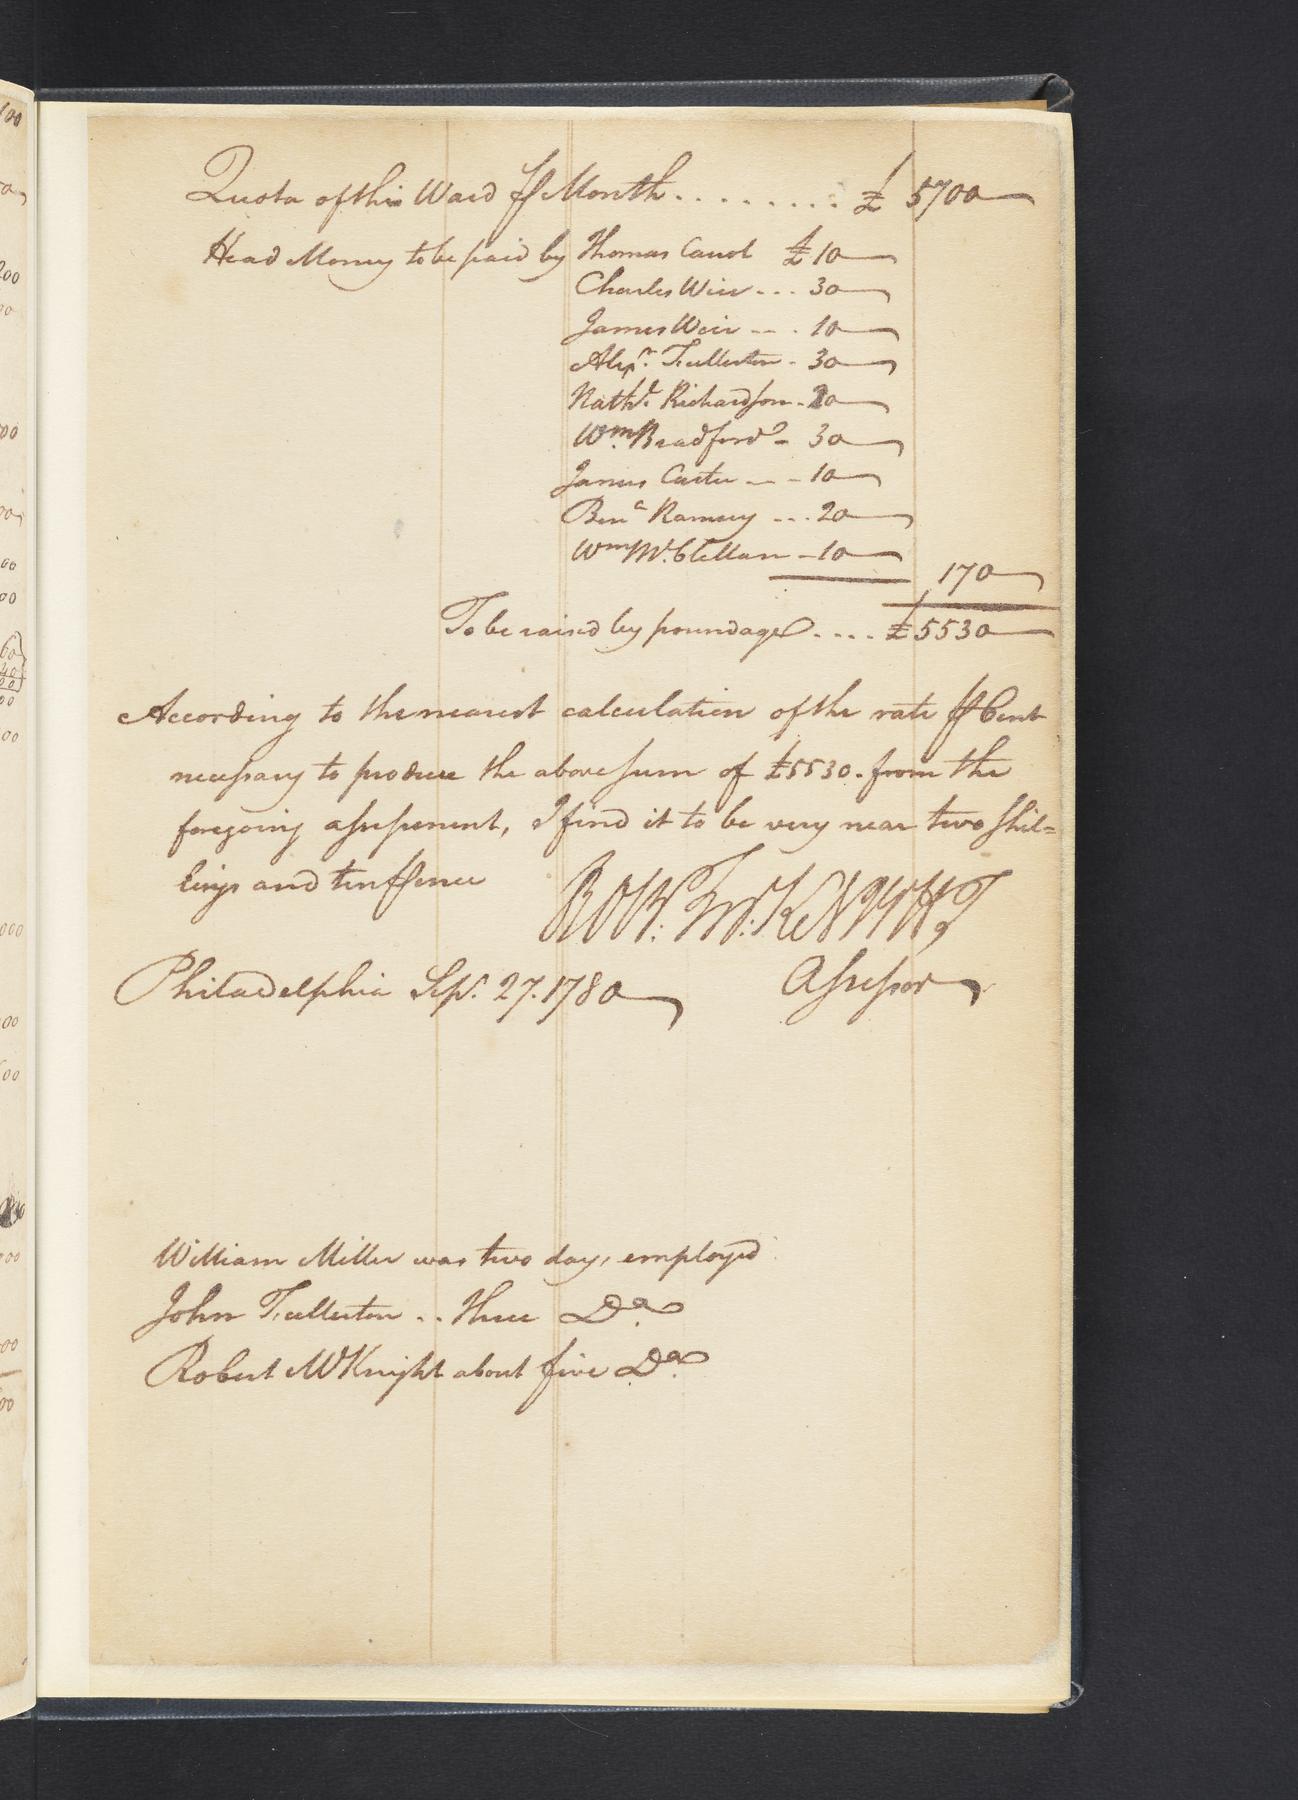 Quota of this Ward ⅌ Month ......... £ 5700
Head Money to be paid by Thomas Carrol £ 10
Charles Weir ... 30
James Weir ... 10
Alexr. Fullerton - 30
Nathl. Richardson - 20
Wm. Bradford - 30
James Carter -- 10
Benn Ramsey ... 20
Wm McClellan - 10
170
To be raised by poundage .... £ 5530
According to the nearest calculation of the rate ⅌ Cent
necessary to produce the above sum of £5530. from the
foregoing assessment, I find it to be very near two shil=
lings and ten pence
Robt. McKnight
Philadelphia Sepr. 27. 1780
Assessor
William Miller was two days employed
John Fullerton .. three Do.
Robert McKnight about five Do.
100
200
00
00
00
60
40
00
00
000
00
00
00
00